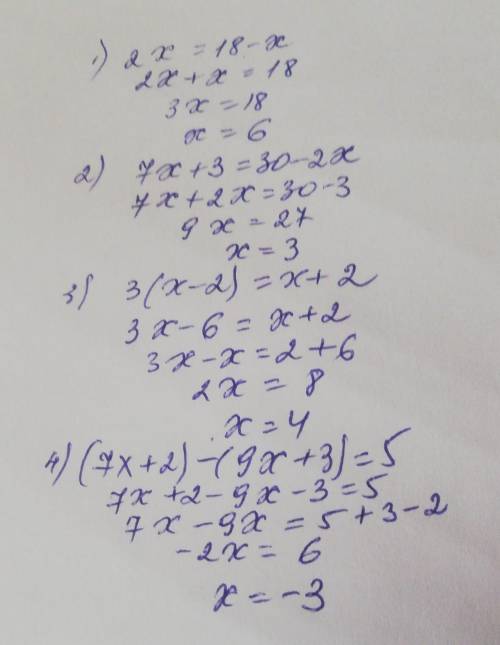 1) 2x = 18 - x
2x + x = 18
3x = 18
x = 6
2) 7x + 3 = 30 - 2x
7x + 2x = 30 - 3
9x = 27
x = 3
3) 3(x - 2) = x + 2
3x - 6 = x + 2
3x - x = 2 + 6
2x = 8
x = 4
4) (7x + 2) - (9x + 3) = 5
7x + 2 - 9x - 3 = 5
7x - 9x = 5 + 3 - 2
-2x = 6
x = -3